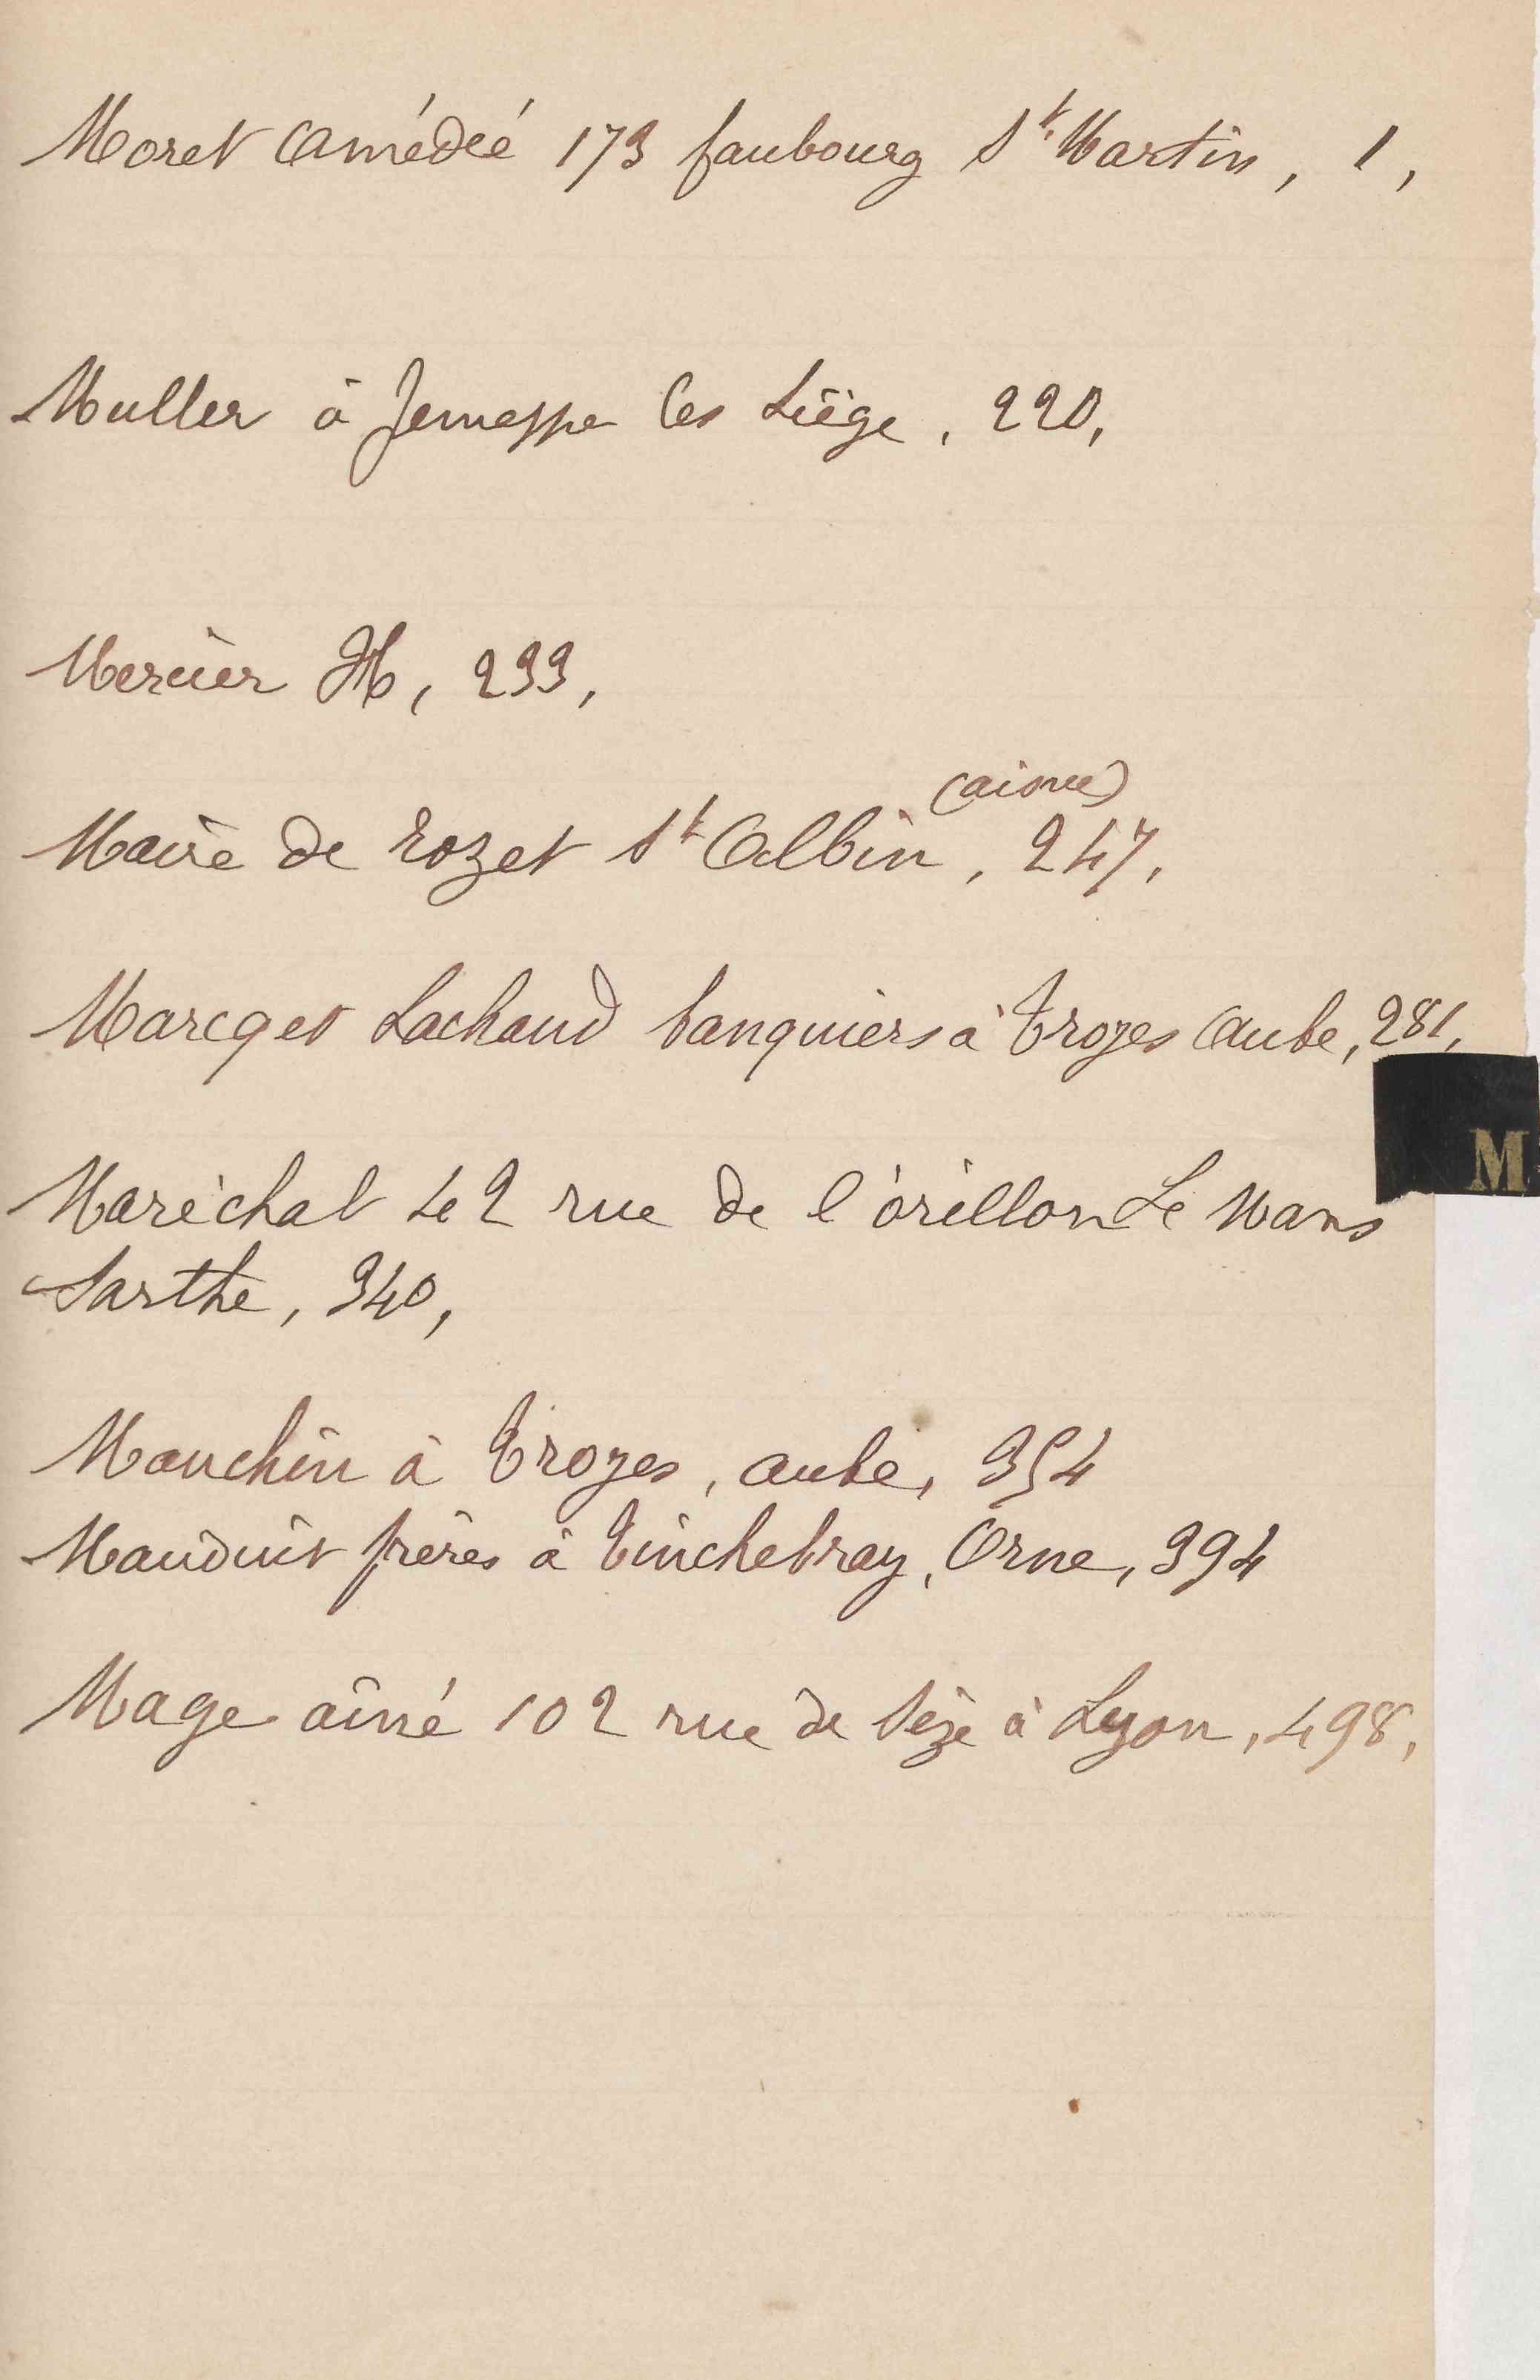 Moret Amédée 173 faubourg St Martin, 1,
Muller à Jemeppe les Liège, 220,
Mercier H, 233,
(aisne)
Maire de rozet St Albin, 247,
Marcq et Lachaud banquiers à Troyes Aube, 281,
M
Maréchal 42 rue de l'orillon Le Mans
Sarthe, 340,
Mauchin à Troyes, aube, 354
Mauduit frères à Tinchebray, Orne, 394
Mage aîné 102 rue de Sèze à Lyon, 498,